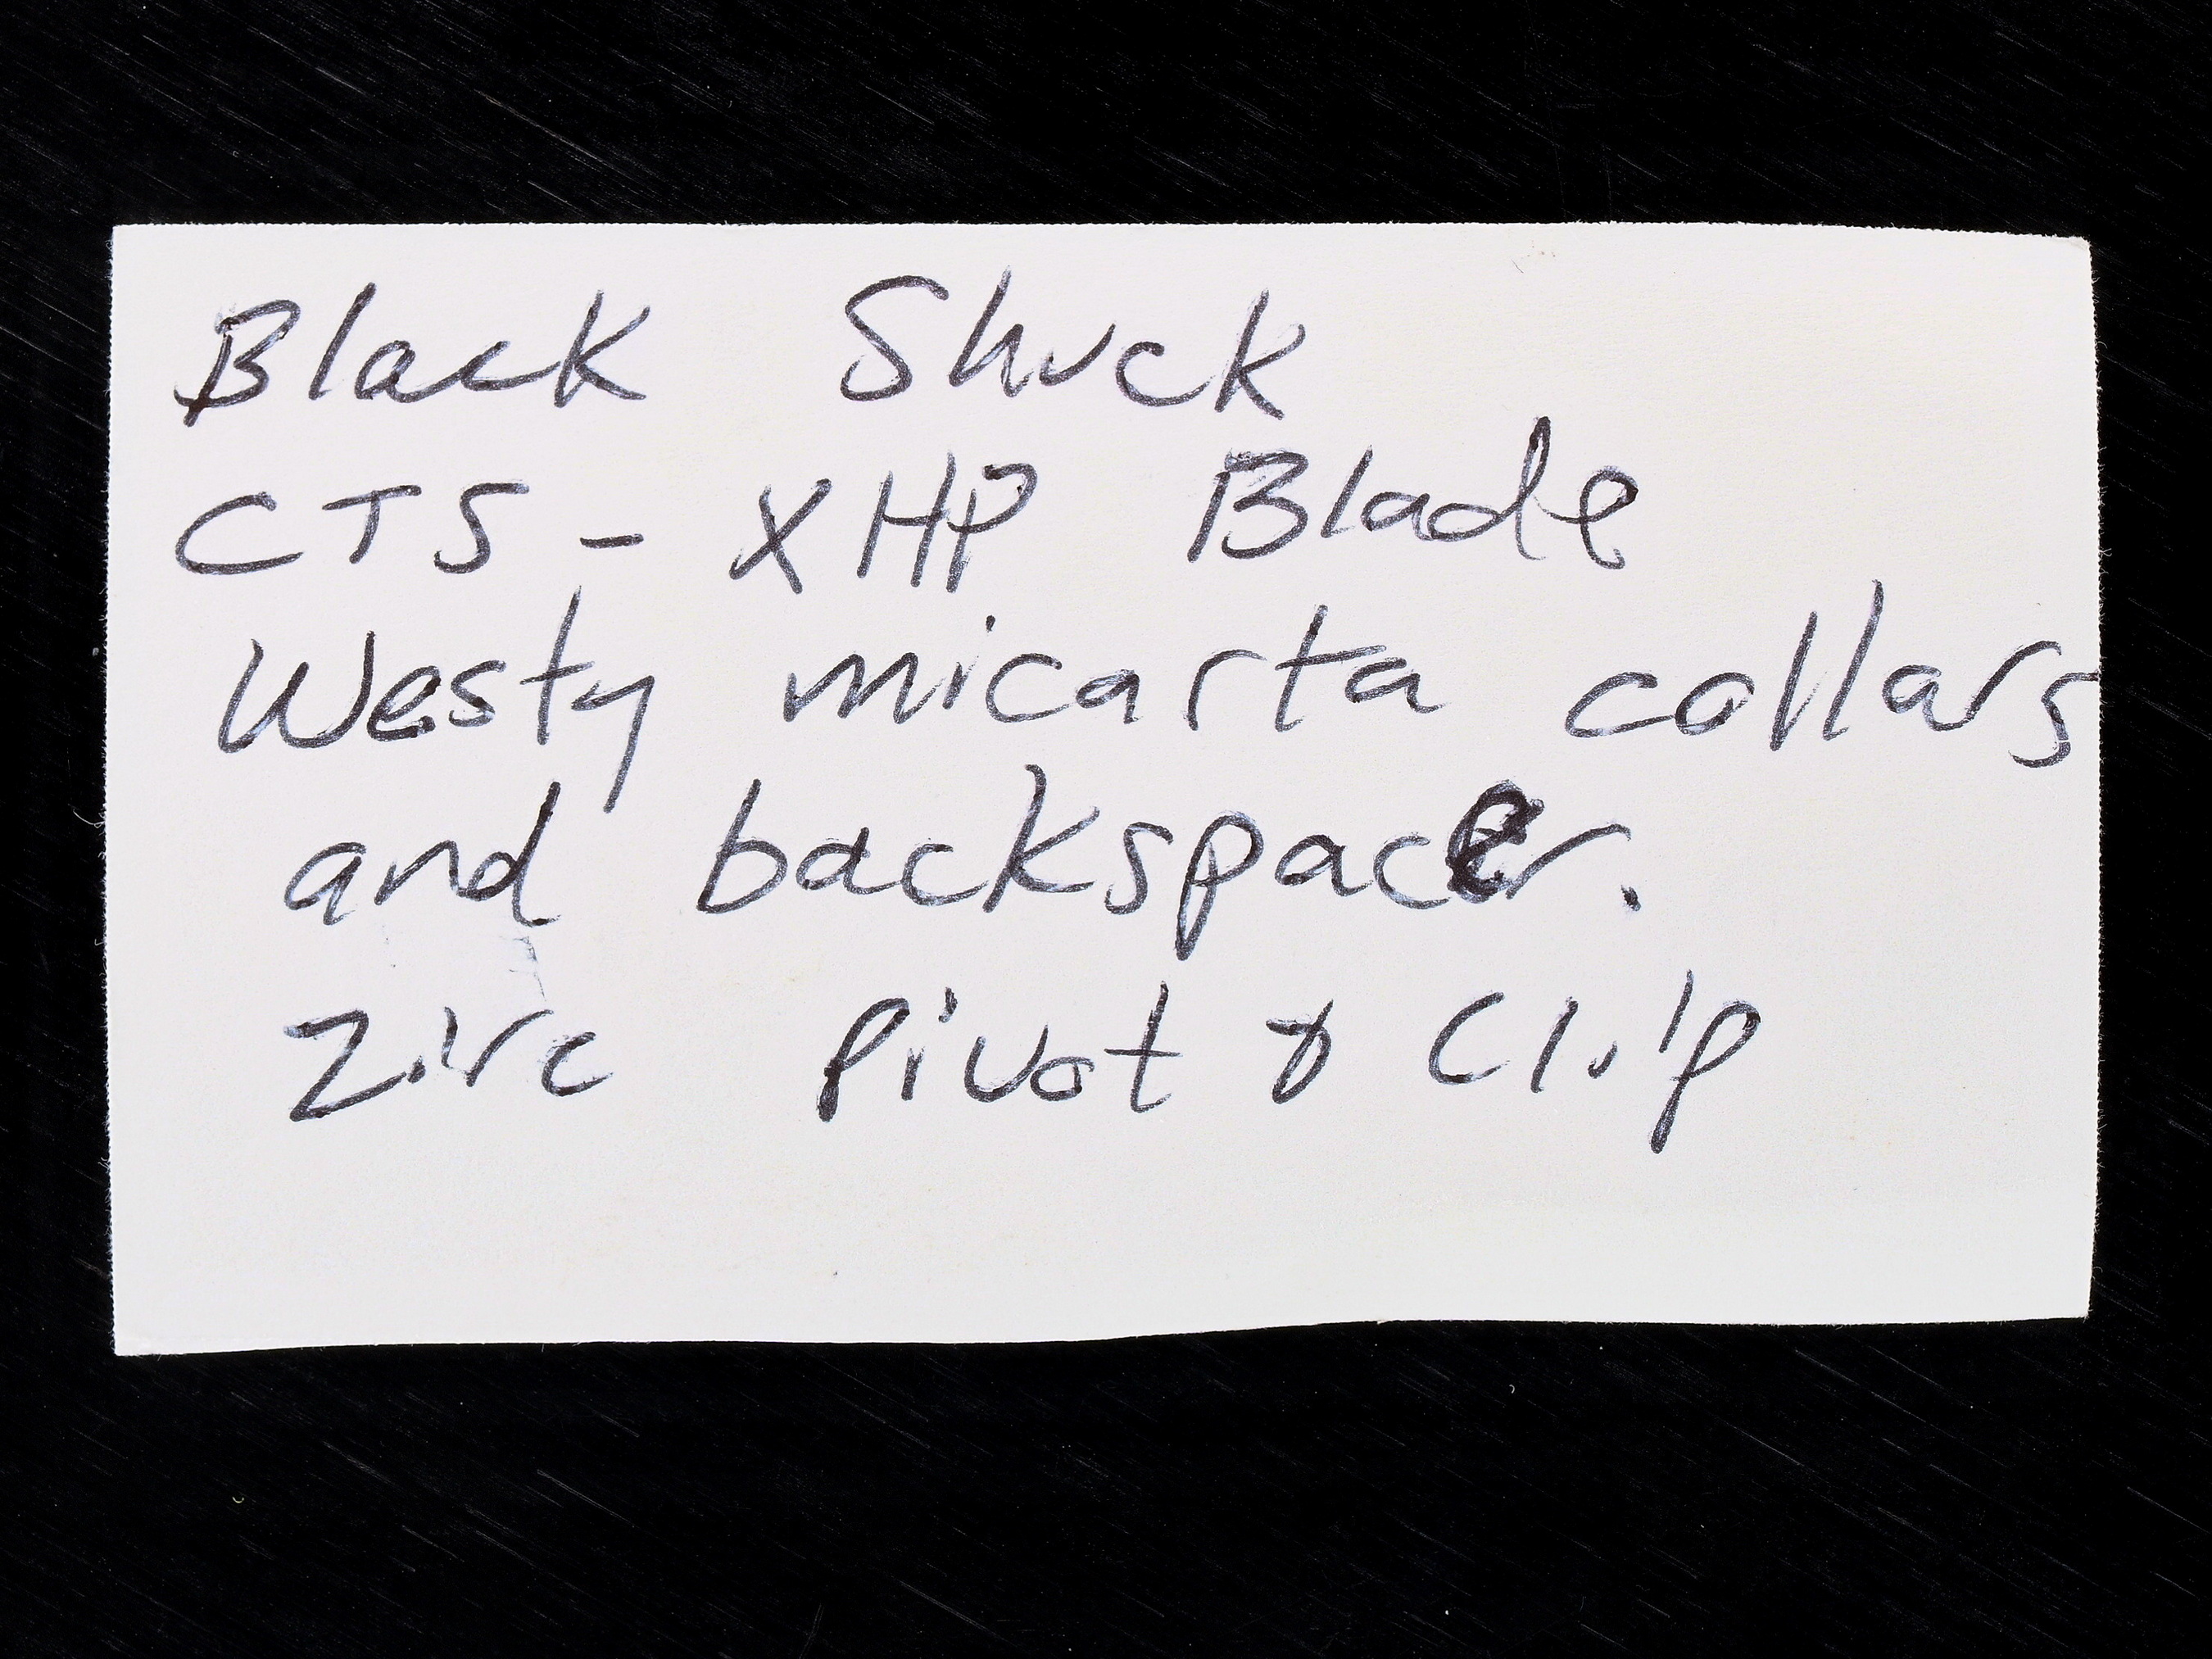 Black Shuck
CTS - XHP Blade
Westy micarta collars
and backspacer.
Zirc Pivot & Clip